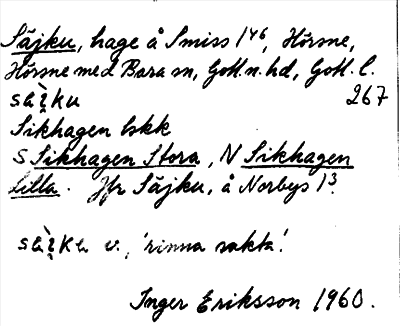 Säjku, hage å Smiss 1⁴⁶, Hörsne,
Hörsne med Bara sn, Gotl. n. hd, Gotl. l.
267
Sikhagen lskk
S Sikhagen Stora, N Sikhagen
Lilla. Jfr Säjku, å Norbys 1³.
v., 'rinna sakta'.
Inger Eriksson 1960.